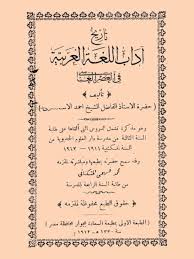 تاريخ
آداب اللغة العربية
في العصر العباسي
تأليف
حضرة الاستاذ الفاضل الشيخ احمد الاسكندري
وهو مذكرة تفصيل الدروس التي ألقاها على طلبة
السنة الثالثة من مدرسة دار العلوم الخديوية في
السنة المكتبية ١٩١١ - ١٩١٢
وقد سمح حضرته بطبعها ومباشرته لملتزمه
محمد
من طلبة السنة الرابعة للمدرسة
حقوق الطبع محفوظة لملتزمه
الطبعة الاولى بمطبعة السعادة بجوار محافظة مصر
سنة ١٣٣٠ هـ - ١٩١٢ م